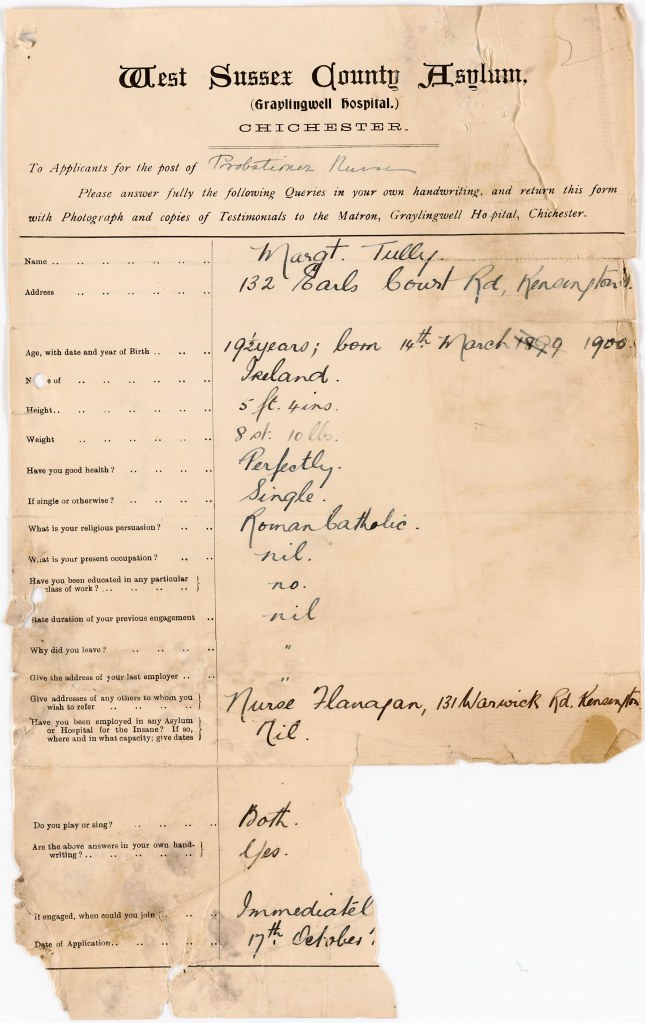 West Sussex County Asylum,
(Graylingwell Hospital.)
CHICHESTER.
To Applicants for the post of Probationer Nurse
Please answer fully the following Queries in your own handwriting, and return this form
with Photograph and copies of Testimonials to the Matron, Graylingwell Ho pital, Chichester.
Name .. .. .. .. .. .. .. Margt. Tully.
Address .. .. .. .. .. .. 132 Earls Court Rd, Kensington
Age, with date and year of Birth .. .. .. 19½ years; born 14th March 1899 1900.
N e of .. .. .. .. .. .. Ireland.
Height.. .. .. .. .. .. .. 5 ft. 4 ins.
Weight .. .. .. .. .. .. 8 st. 10 lbs.
Have you good health? .. .. .. .. Perfectly.
If single or otherwise? .. .. .. .. Single.
What is your religious persuasion? .. .. Roman Catholic.
What is your present occupation? .. .. nil.
Have you been educated in any particular
class of work? .. .. .. .. .. no.
State duration of your previous engagement .. nil
Why did you leave? .. .. .. .. "
Give the address of your last employer .. .. "
Give addresses of any others to whom you
wish to refer .. .. .. .. Nurse Flanagan, 131 Warwick Rd. Kensington
Have you been employed in any Asylum
or Hospital for the Insane? If so,
where and in what capacity; give dates Nil.
Do you play or sing? .. .. .. .. Both.
Are the above answers in your own hand-
writing? .. .. .. .. .. Yes.
If engaged, when could you join .. .. .. Immediatel
Date of Application.. .. .. .. .. 17th October